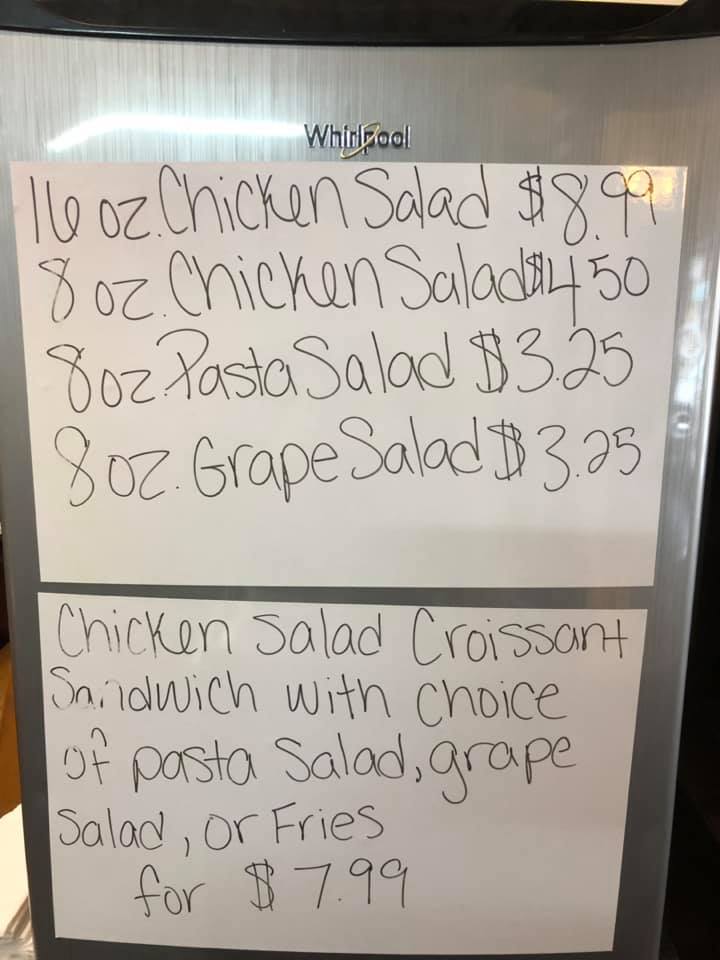 Whirlpool
16 oz. Chicken Salad $8.99
8 oz. Chicken Salad $4.50
8 oz. Pasta Salad $3.25
8 oz. Grape Salad $3.25
Chicken Salad Croissant
Sandwich with choice
of pasta Salad, grape
Salad, or Fries
for $7.99